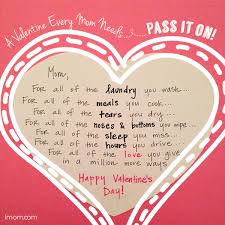 A Valentine Every Mom Needs..... PASS IT ON!
Mom,
For all of the laundry you wash...
For all of the meals you cook...
For all of the tears you dry...
For all of the noses & bottoms you wipe...
For all of the sleep you miss...
For all of the hours you drive...
For all of the love you give
in a million more ways
Happy Valentine's
Day!
imom.com